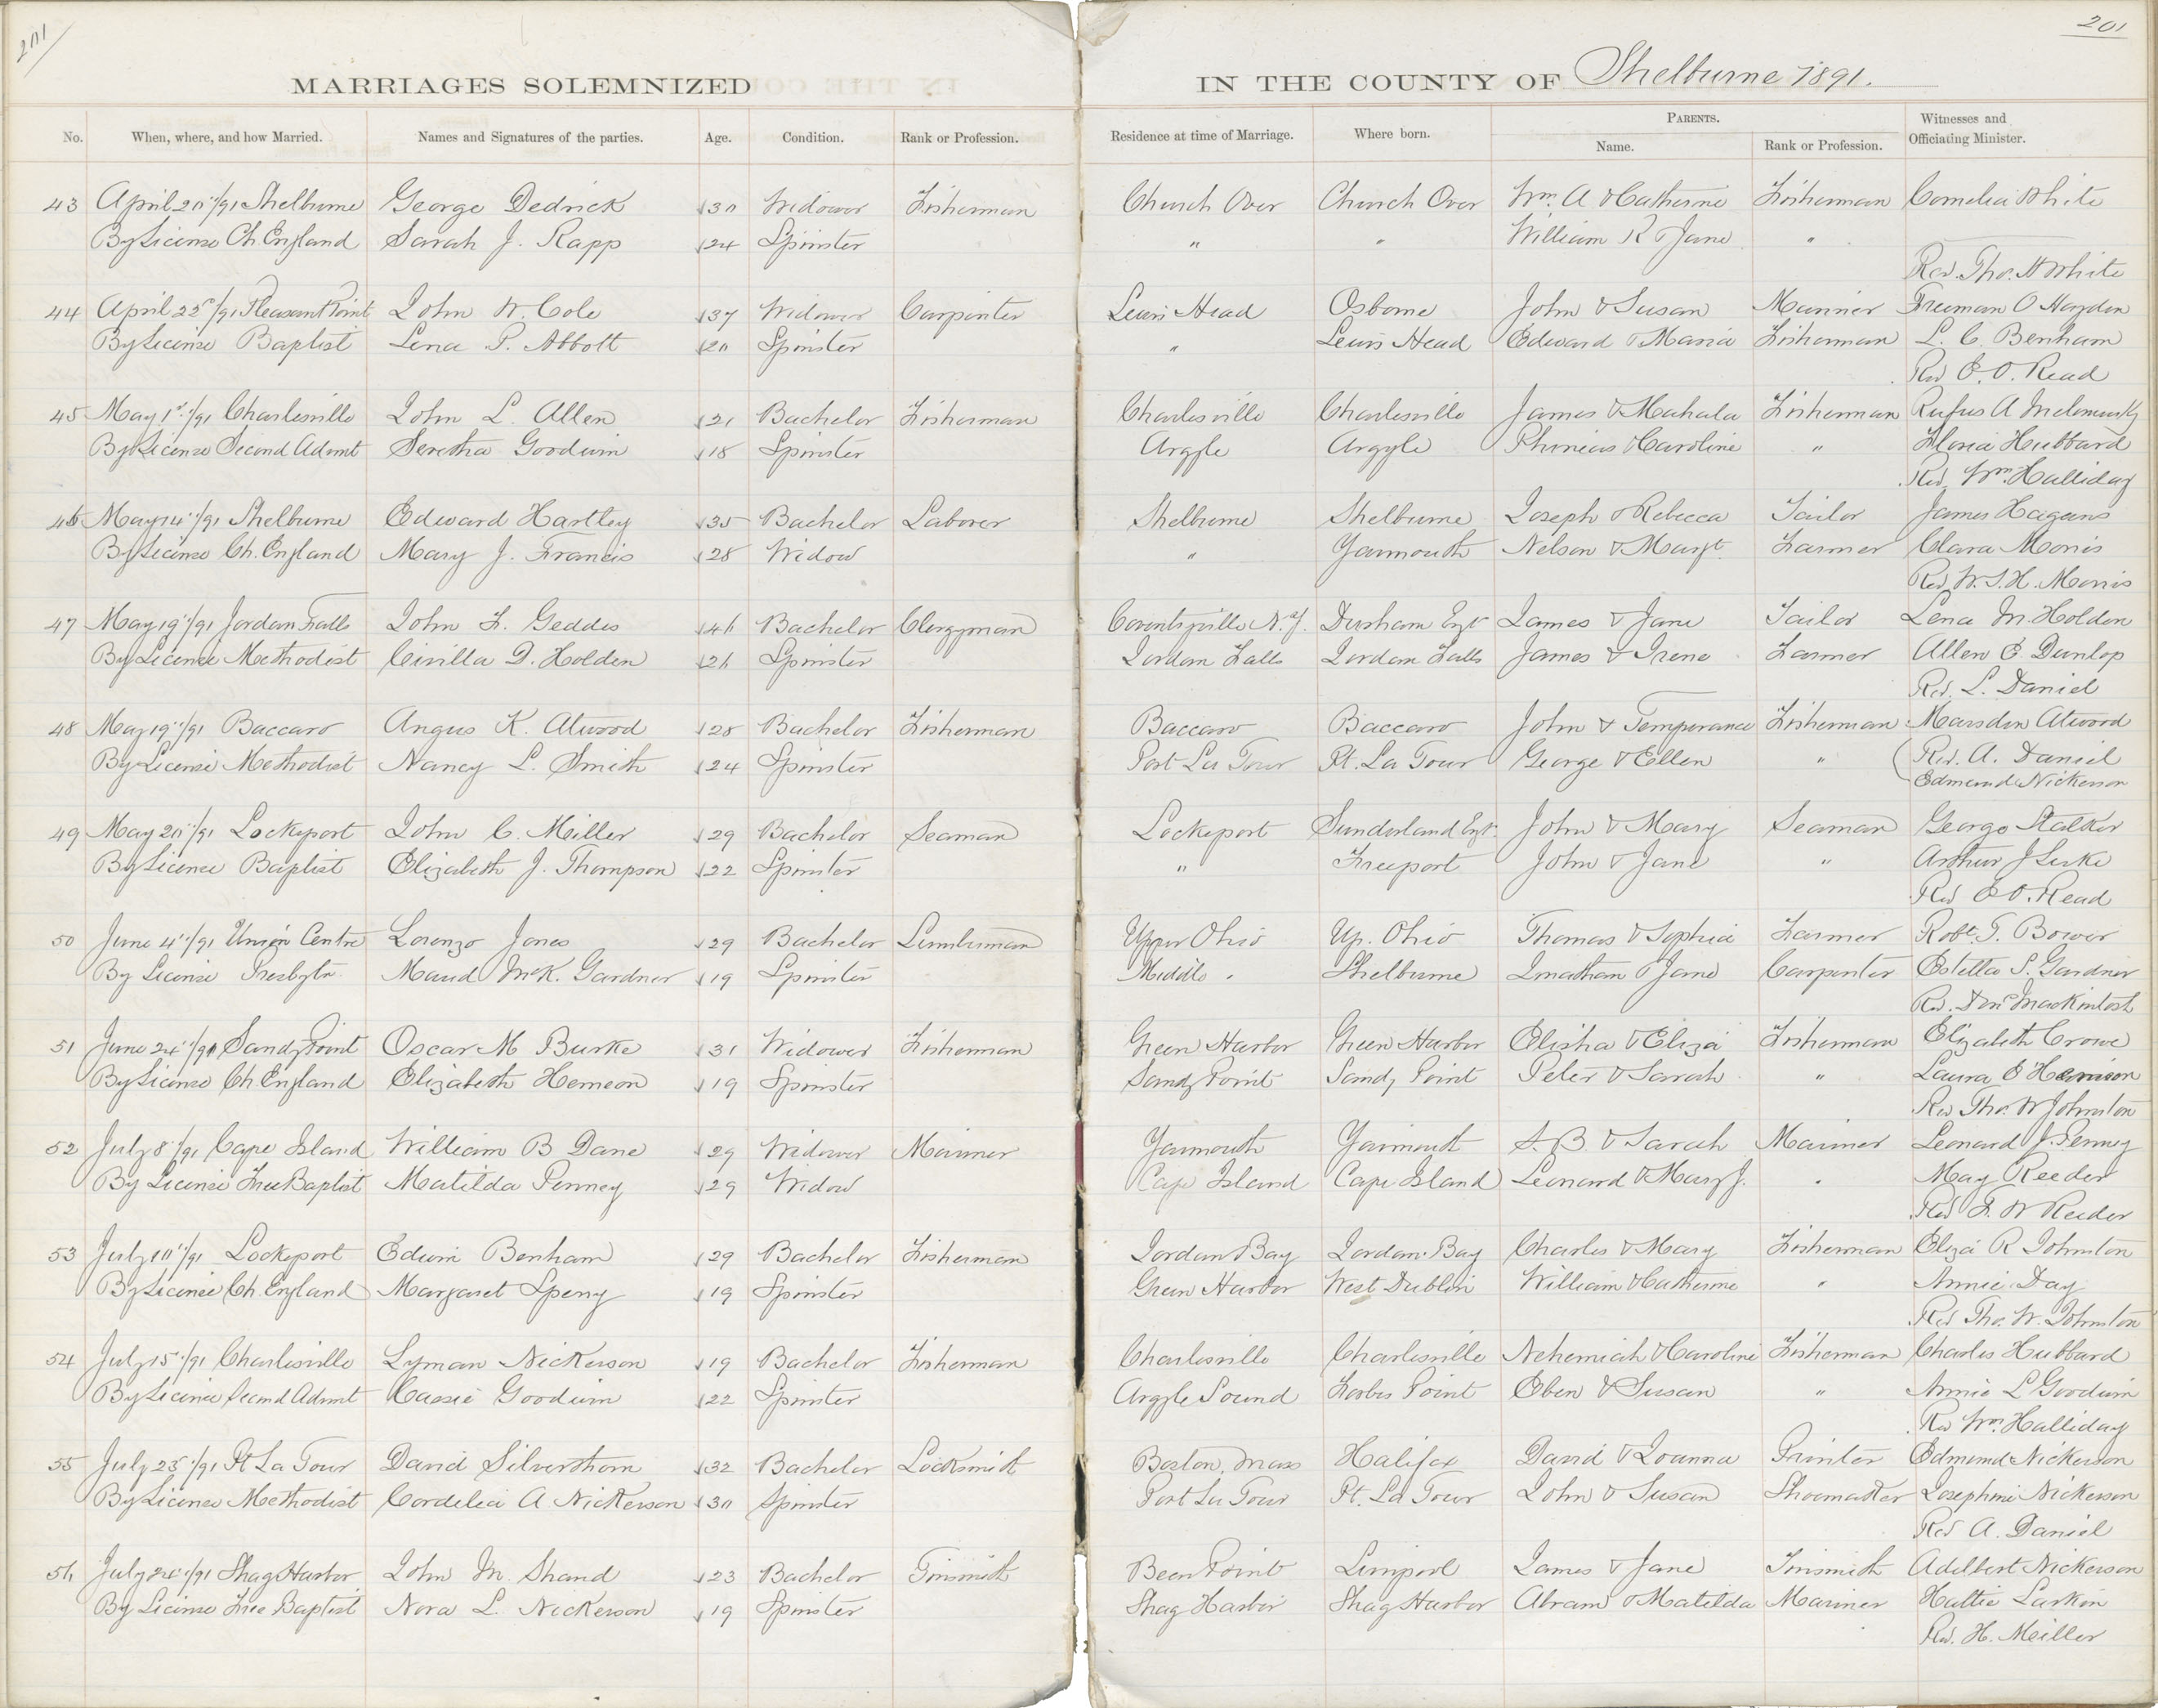 201
201
MARRIAGES SOLEMNIZED IN THE COUNTY OF Shelburne 1891.
No. When, where, and how Married. Names and Signatures of the parties. Age. Condition. Rank or Profession. Residence at time of Marriage. Where born. PARENTS. Name. Rank or Profession. Witnesses and Officiating Minister.
43 April 20"/91 Shelburne George Dedrick 30 Widower Fisherman Church Over Church Over Wm. A & Catherine Fisherman Cornelia White
By License Ch. England Sarah J. Rapp 24 Spinster " " William R & Jane "
Rev. Tho. H White
44 April 22"/91 Pleasant Point John W. Cole 37 Widower Carpenter Lewis Head Osborne John & Susan Mariner Freeman O Haydon
By License Baptist Lena P. Abbott 20 Spinster " Lewis Head Edward & Maria Fisherman L. C. Benham
Rev E. O. Read
45 May 1st/91 Charlesville John L. Allen 21 Bachelor Fisherman Charlesville Charlesville James & Mahala Fisherman Rufus A
By License Second Advnt Seretha Goodwin 18 Spinster Argyle Argyle Phineas & Caroline " Hubbard
Rev. Wm. Halliday
46 May 14"/91 Shelburne Edward Hartley 35 Bachelor Laborer Shelburne Shelburne Joseph & Rebecca Tailor James Hagans
By License Ch. England Mary J. Francis 28 Widow " Yarmouth Nelson & Margt. Farmer Clara Morris
Rev. W. S. H. Morris
47 May 19"/91 Jordan Falls John F. Geddes 46 Bachelor Clergyman Coventryville N.Y. Durham Eng James & Jane Tailor Lena M. Holden
By License Methodist Civilla D. Holden 26 Spinster Jordan Falls Jordan Falls James & Irene Farmer Allen E. Dunlop
Rev. L. Daniel
48 May 19"/91 Baccaro Angus K. Atwood 28 Bachelor Fisherman Baccaro Baccaro John & Temperance Fisherman Marsden Atwood
By License Methodist Nancy L. Smith 24 Spinster Port La Tour Pt. La Tour George & Ellen " Rev. A. Daniel
Edmund Nickerson
49 May 20"/91 Lockeport John C. Miller 29 Bachelor Seaman Lockeport Sunderland Eng. John & Mary Seaman George Stalker
By License Baptist Elizabeth J. Thompson 22 Spinster " Freeport John & Jane " Arthur J
Rev E O. Read
50 June 4"/91 Union Centre Lorenzo Jones 29 Bachelor Lumberman Upper Ohio Up. Ohio Thomas & Sophia Farmer Robt. T. Bower
By License Presbytn Maud McK. Gardner 19 Spinster Middle " Shelburne Jonathan & Jane Carpenter Estella S. Gardner
Rev. Mackintosh
51 June 24"/91 Sandy Point Oscar M Burke 31 Widower Fisherman Green Harbor Green Harbor Elisha & Eliza Fisherman Elizabeth Crowe
By License Ch. England Elizabeth Hemeon 19 Spinster Sandy Point Sandy Point Peter & Sarah " Laura E Hemeon
Rev Tho. W Johnston
52 July 8"/91 Cape Island William B Dane 29 Widower Mariner Yarmouth Yarmouth S. B. & Sarah Mariner Leonard J. Penney
By License Free Baptist Matilda Penney 29 Widow Cape Island Cape Island Leonard & Mary J. " May Reeder
Rev F. W Reeder
53 July 10"/91 Lockeport Edwin Benham 29 Bachelor Fisherman Jordan Bay Jordan Bay Charles & Mary Fisherman Eliza R Johnston
By License Ch. England Margaret Sperry 19 Spinster Green Harbor West Dublin William & Catherine " Annie Day
Rev Tho. W. Johnston
54 July 15"/91 Charlesville Lyman Nickerson 19 Bachelor Fisherman Charlesville Charlesville Nehemiah & Caroline Fisherman Charles Hubbard
By License Second Advnt Cassie Goodwin 22 Spinster Argyle Sound Forbes Point Eben & Susan " Annie L Goodwin
Rev Wm. Halliday
55 July 23"/91 Pt La Tour David Silverthorn 32 Bachelor Locksmith Boston, Mass Halifax David & Joanna Printer Edmund Nickerson
By License Methodist Cordelia A Nickerson 30 Spinster Port La Tour Pt. La Tour John & Susan Shoemaker Josephine Nickerson
Rev A. Daniel
56 July 24"/91 Shag Harbor John M. Shand 23 Bachelor Tinsmith Bear Point Liverpool James & Jane Tinsmith Adelbert Nickerson
By License Free Baptist Nora L. Nickerson 19 Spinster Shag Harbor Shag Harbor Abram & Matilda Mariner Hattie Larkin
Rev. H. Miller